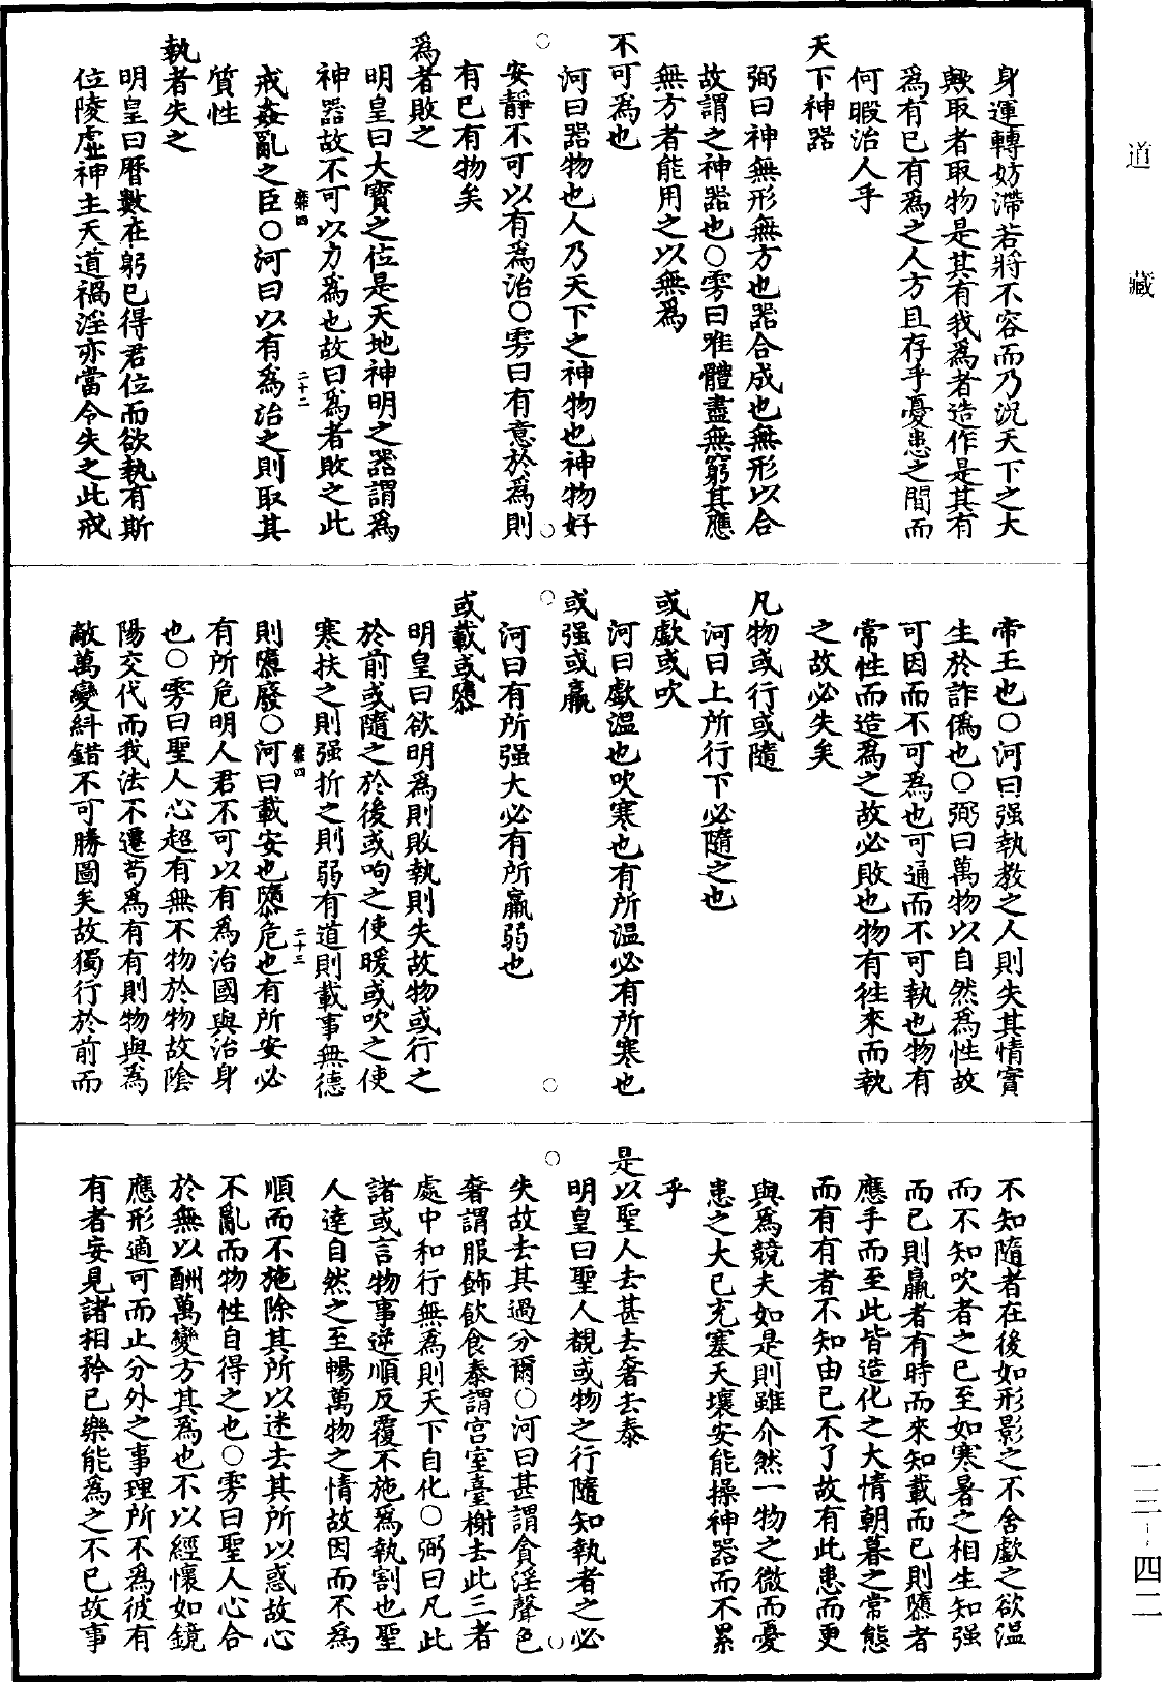 道藏
身運轉妨滯若將不容而乃況天下之大
歟取者取物是其有我為者造作是其有
為有已有為之人方且存乎憂患之間而
何暇治人乎
天下神器
弼曰神無形無方也器合成也無形以合
故謂之神器也○雱曰唯體盡無窮其應
無方者能用之以無為
不可為也
河曰器物也人乃天下之神物也神物好
安靜不可以有為治○雱曰有意於為則
有已有物矣
為者敗之
明皇曰大寶之位是天地神明之器謂為
神器故不可以力為也故曰為者敗之此
戒姦亂之臣○河曰以有為治之則取其
質性
執者失之
明皇曰曆數在躬已得君位而欲執有斯
位陵虛神主天道禍淫亦當令失之此戒
帝王也○河曰强執教之人則失其情實
生於詐偽也○弼曰萬物以自然為性故
可因而不可為也可通而不可執也物有
常性而造為之故必敗也物有徃來而執
之故必失矣
凡物或行或隨
河曰上所行下必隨之也
或歔或吹
河曰歔温也吹寒也有所温必有所寒也
或强或羸
河曰有所强大必有所羸弱也
或載或隳
明皇曰欲明為則敗執則失故物或行之
於前或隨之於後或呴之使暖或吹之使
寒扶之則强折之則弱有道則載事無德
則隳廢○河曰載安也隳危也有所安必
有所危明人君不可以有為治國與治身
也○雱曰聖人心超有無不物於物故陰
陽交代而我法不遷苟為有有則物與為
敵萬變糾錯不可勝圖矣故獨行於前而
不知隨者在後如形影之不舍歔之欲温
而不知吹者之已至如寒暑之相生知强
而已則羸者有時而來知載而已則隳者
應手而至此皆造化之大情朝暮之常態
而有有者不知由已不了故有此患而更
與為競夫如是則雖介然一物之微而憂
患之大已充塞天壤安能操神器而不累
乎
是以聖人去甚去奢去泰
明皇曰聖人覩或物之行隨知執者之必
失故去其過分爾○河曰甚謂貪淫聲色
奢謂服飾飲食泰謂宫室臺榭去此三者
處中和行無為則天下自化○弼曰凡此
諸或言物事逆順反覆不施為執割也聖
人達自然之至暢萬物之情故因而不為
順而不施除其所以迷去其所以惑故心
不亂而物性自得之也○雱曰聖人心合
於無以酬萬變方其為也不以經懷如鏡
應形適可而止分外之事理所不為彼有
有者妄見諸相矜已樂能為之不已故事
二十二
二十三
一三-四二